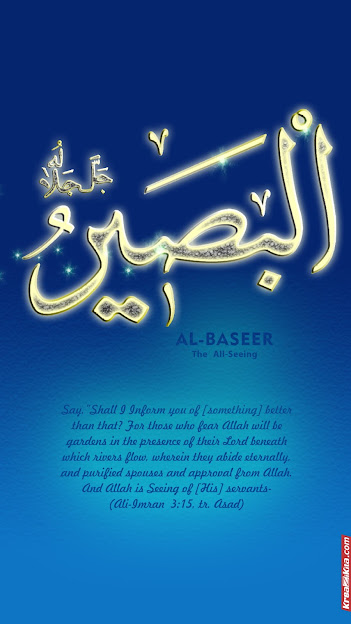 البصير
جل جلاله
AL-BASEER
The All-Seeing
Say, "Shall I Inform you of [something] better
than that? For those who fear Allah will be
gardens in the presence of their Lord beneath
which rivers flow, wherein they abide eternally,
and purified spouses and approval from Allah.
And Allah is Seeing of [His] servants-
(Ali-Imran 3:15, tr. Asad)